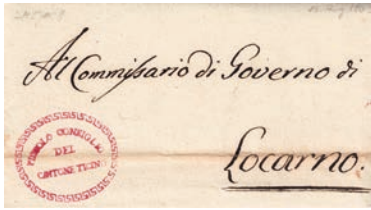 Al Commissario di Governo di
Locarno.
PICCOLO CONSIGLIO
DEL
CANTONE TICINO